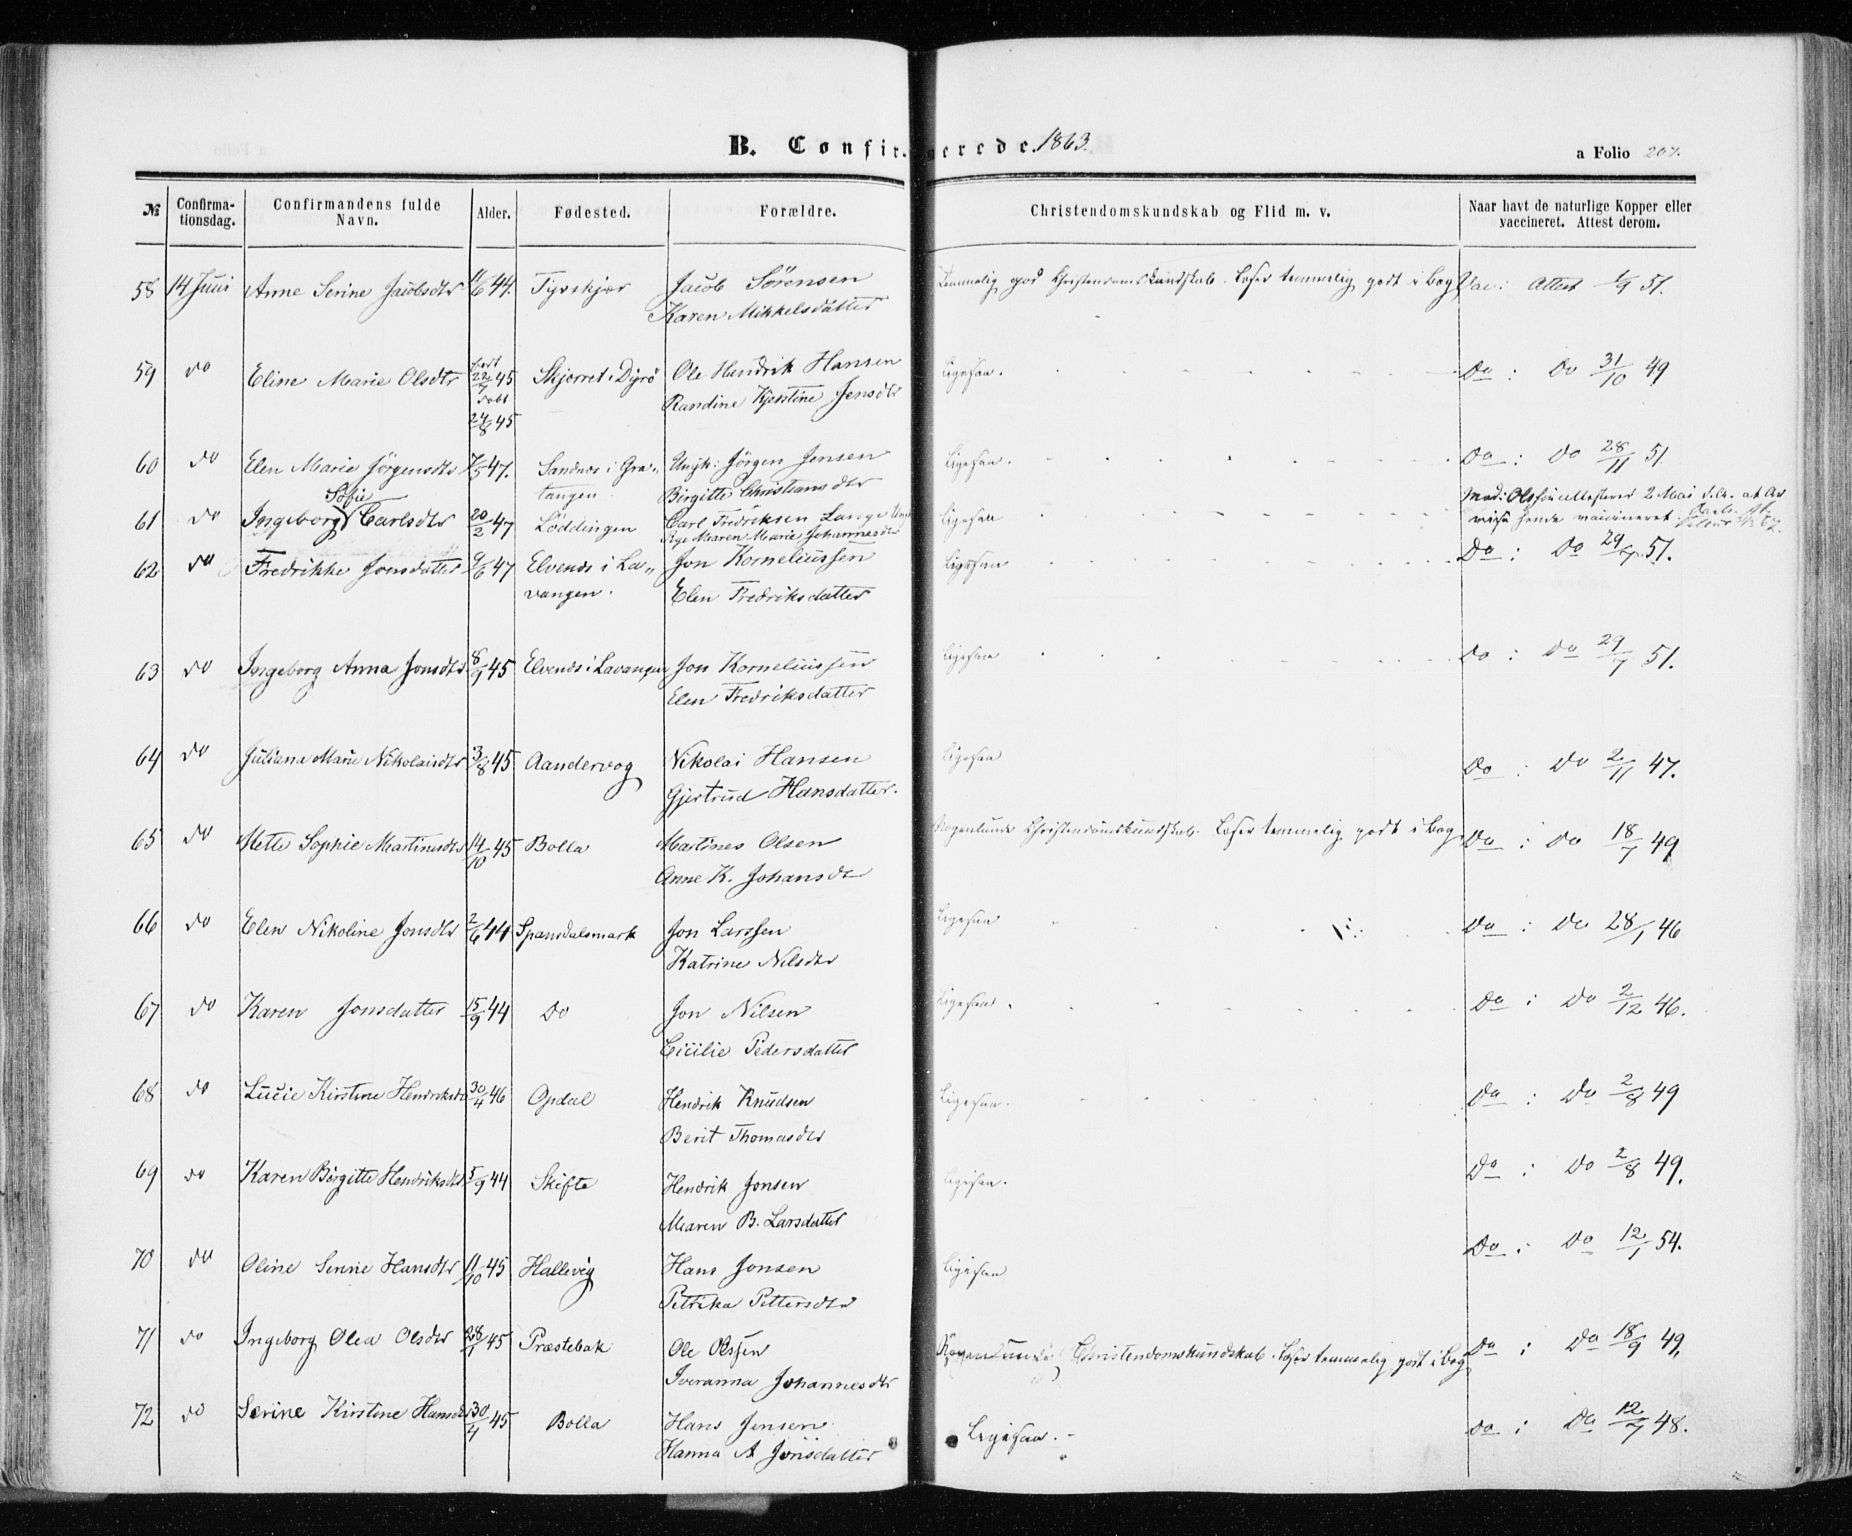 B. Confir- merede. 1863.
a Folio 207.
№ Confirma-tionsdag. Confirmandens fulde Navn. Alder. Fødested. Forældre. Christendomskundskab og Flid m. v. Naar havt de naturlige Kopper eller vaccineret. Attest derom.
58 14 Juni Anne Serine Jacobsdtr 11/6 44. Tyvskjær Jacob Sörensen Temmelig god Christendomskundskab. Læser temmelig godt i Bog Vac: Attest 1/9 51.
Karen Mikkelsdatter
59 do Eline Marie Olsdtr født 22/7 45 døbt 24/8 45 Skjørret i Dyrö Ole Hendrik Hansen Ligesaa. Do : Do 31/10 49
Randine Kjerstine Jensdtr
60 do Elen Marie Jörgensdtr 7/5 47. Sandnes i Gra- Ungk: Jörgen Jensen Ligesaa. Do : Do 28/11 51.
tangen. Birgitte Christiansdtr
61 do Ingeborg Sofie Carlsdtr 20/2 47 Löddingen Carl Fredriksen Lange Ligesaa
Pige Maren Marie Johannesdtr
62 do Fredrikke Jonsdatter 9/6 47 Elvenes i La- Jon Korneliussen Ligesaa Do : Do 29/7 51.
vangen. Elen Fredriksdatter
63 do Ingeborg Anna Jonsdtr 8/9 45 Elvenes i Lavangen Jon Korneliussen Ligesaa Do : Do 29/7 51.
Elen Fredriksdatter
64 do Juliana Marie Nikolaisdtr 3/8 45 Aandervog Nikolai Hansen Ligesaa Do : Do 2/11 47.
Gjertrud Hansdatter.
65 do Mette Sophie Martinusdtr 14/10 45 Bolla Martines Olsen Nogenlunde Christendomskundskab. Læser temmelig godt i Bog Do : Do 18/7 49
Anne K. Johansdtr
66 do Elen Nikoline Jonsdtr 2/6 44 Spansdalsmark Jon Larssen Ligesaa Do : Do 28/1 46
Katrine Nilsdtr
67 do Karen Jonsdatter 15/9 44 Do Jon Nilsen Ligesaa. Do : Do 2/12 46.
Cicilie Pedersdatter
68 do Lucie Kirstine Hendriksdtr 30/4 46 Opdal Hendrik Knudsen Ligesaa. Do : Do 2/8 49
Berit Thomasdtr
69 do Karen Birgitte Hendriksdtr 5/9 44 Skifte Hendrik Jonsen Ligesaa. Do : Do 2/8 49.
Maren B. Larsdatter
70 do Oline Serine Hansdtr 11/10 45 Hallevig Hans Jonsen Ligesaa Do : Do 12/1 54.
Petrika Pettersdtr
71 do Ingeborg Olea Olsdtr 28/1 45 Præstebak Ole Olssen Nogenlunde Christendomskundskab. Læser temmelig godt i Bog Do : Do 18/9 49,
Iveranna Johannesdtr
72 do Serine Kirstine Hansdtr 30/4 45 Bolla Hans Jensen Ligesaa. Do : Do 12/7 48.
Hanna A Jonsdatter